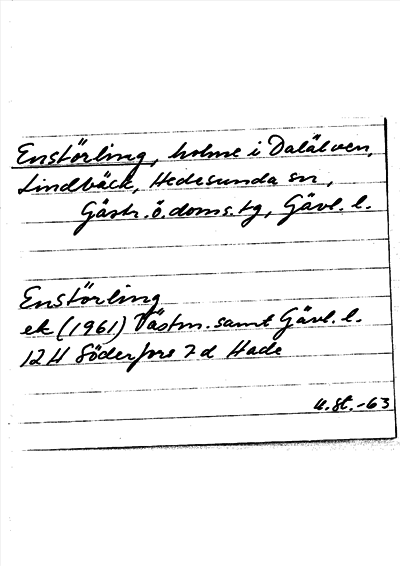 Enstörling, holme i Dalälven,
Lindbäck, Hedesunda sn,
Gästr. ö. doms. tg, Gävl. l.
Enstörling
ek (1961) Västm. samt Gävl. l.
12 H Söderfors 7 d Hade
u. st. -63